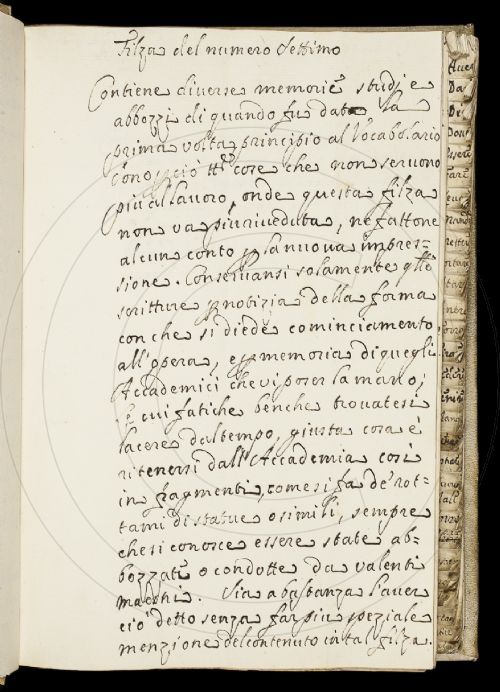 Filza del numero Settimo
Contiene diverse memorie studi e
abbozzi di quando fu dato la
prima volta principio al Vocabolario
cose che non servono
più al lavoro, onde questa filza
non va più riveduta, ne fattone
alcun conto p la nuova impres=
sione. Conservansi solamente qlle
scritture p notizia della forma
con che si diede cominciamento
all'opera, e p memoria di quegli
Accademici che vi poser la mano;
le cui fatiche benche trovatesi
lacere dal tempo, giusta cosa è
ritenersi dall'Accademia così
in fragmenti, come si fa de' rot=
tami di statue o simili, sempre
che si conosce essere state ab=
bozzate o condotte da valenti
Maestri. Sia abastanza l'aver
ciò detto senza far più speziale
menzione del contenuto in tal filza.